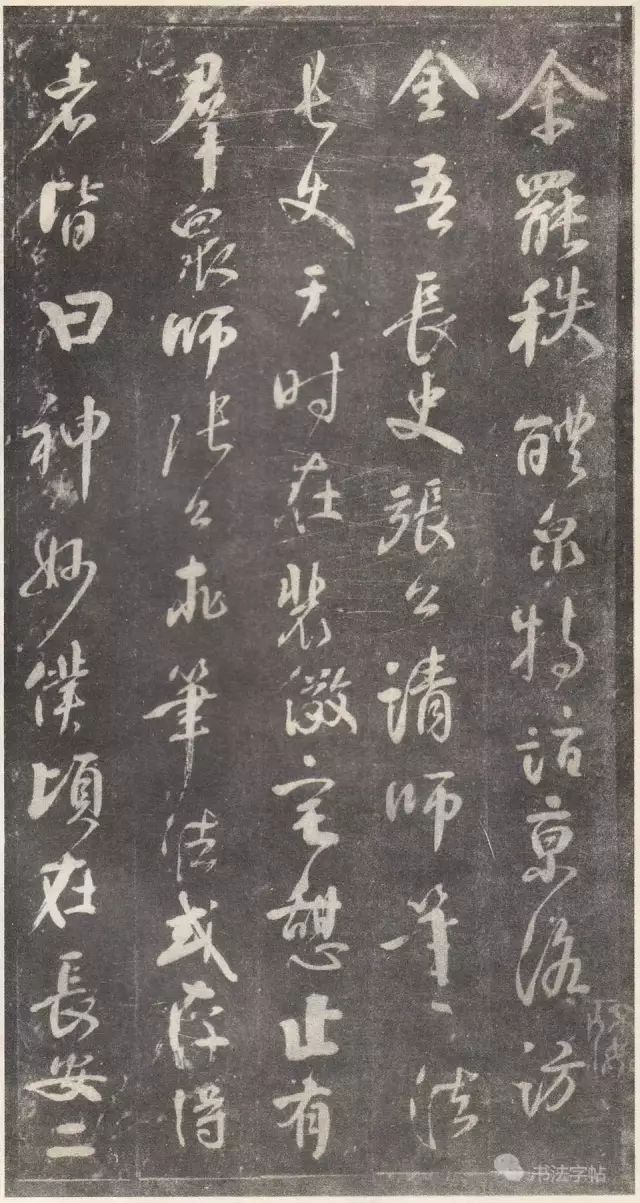 余罷秩醴泉特詣京洛訪
金吾長史張公請師筆法
長史于时在裴儆宅憩止有
羣眾師張公求筆法或存得
者皆曰神妙僕頃在長安二
书法字帖